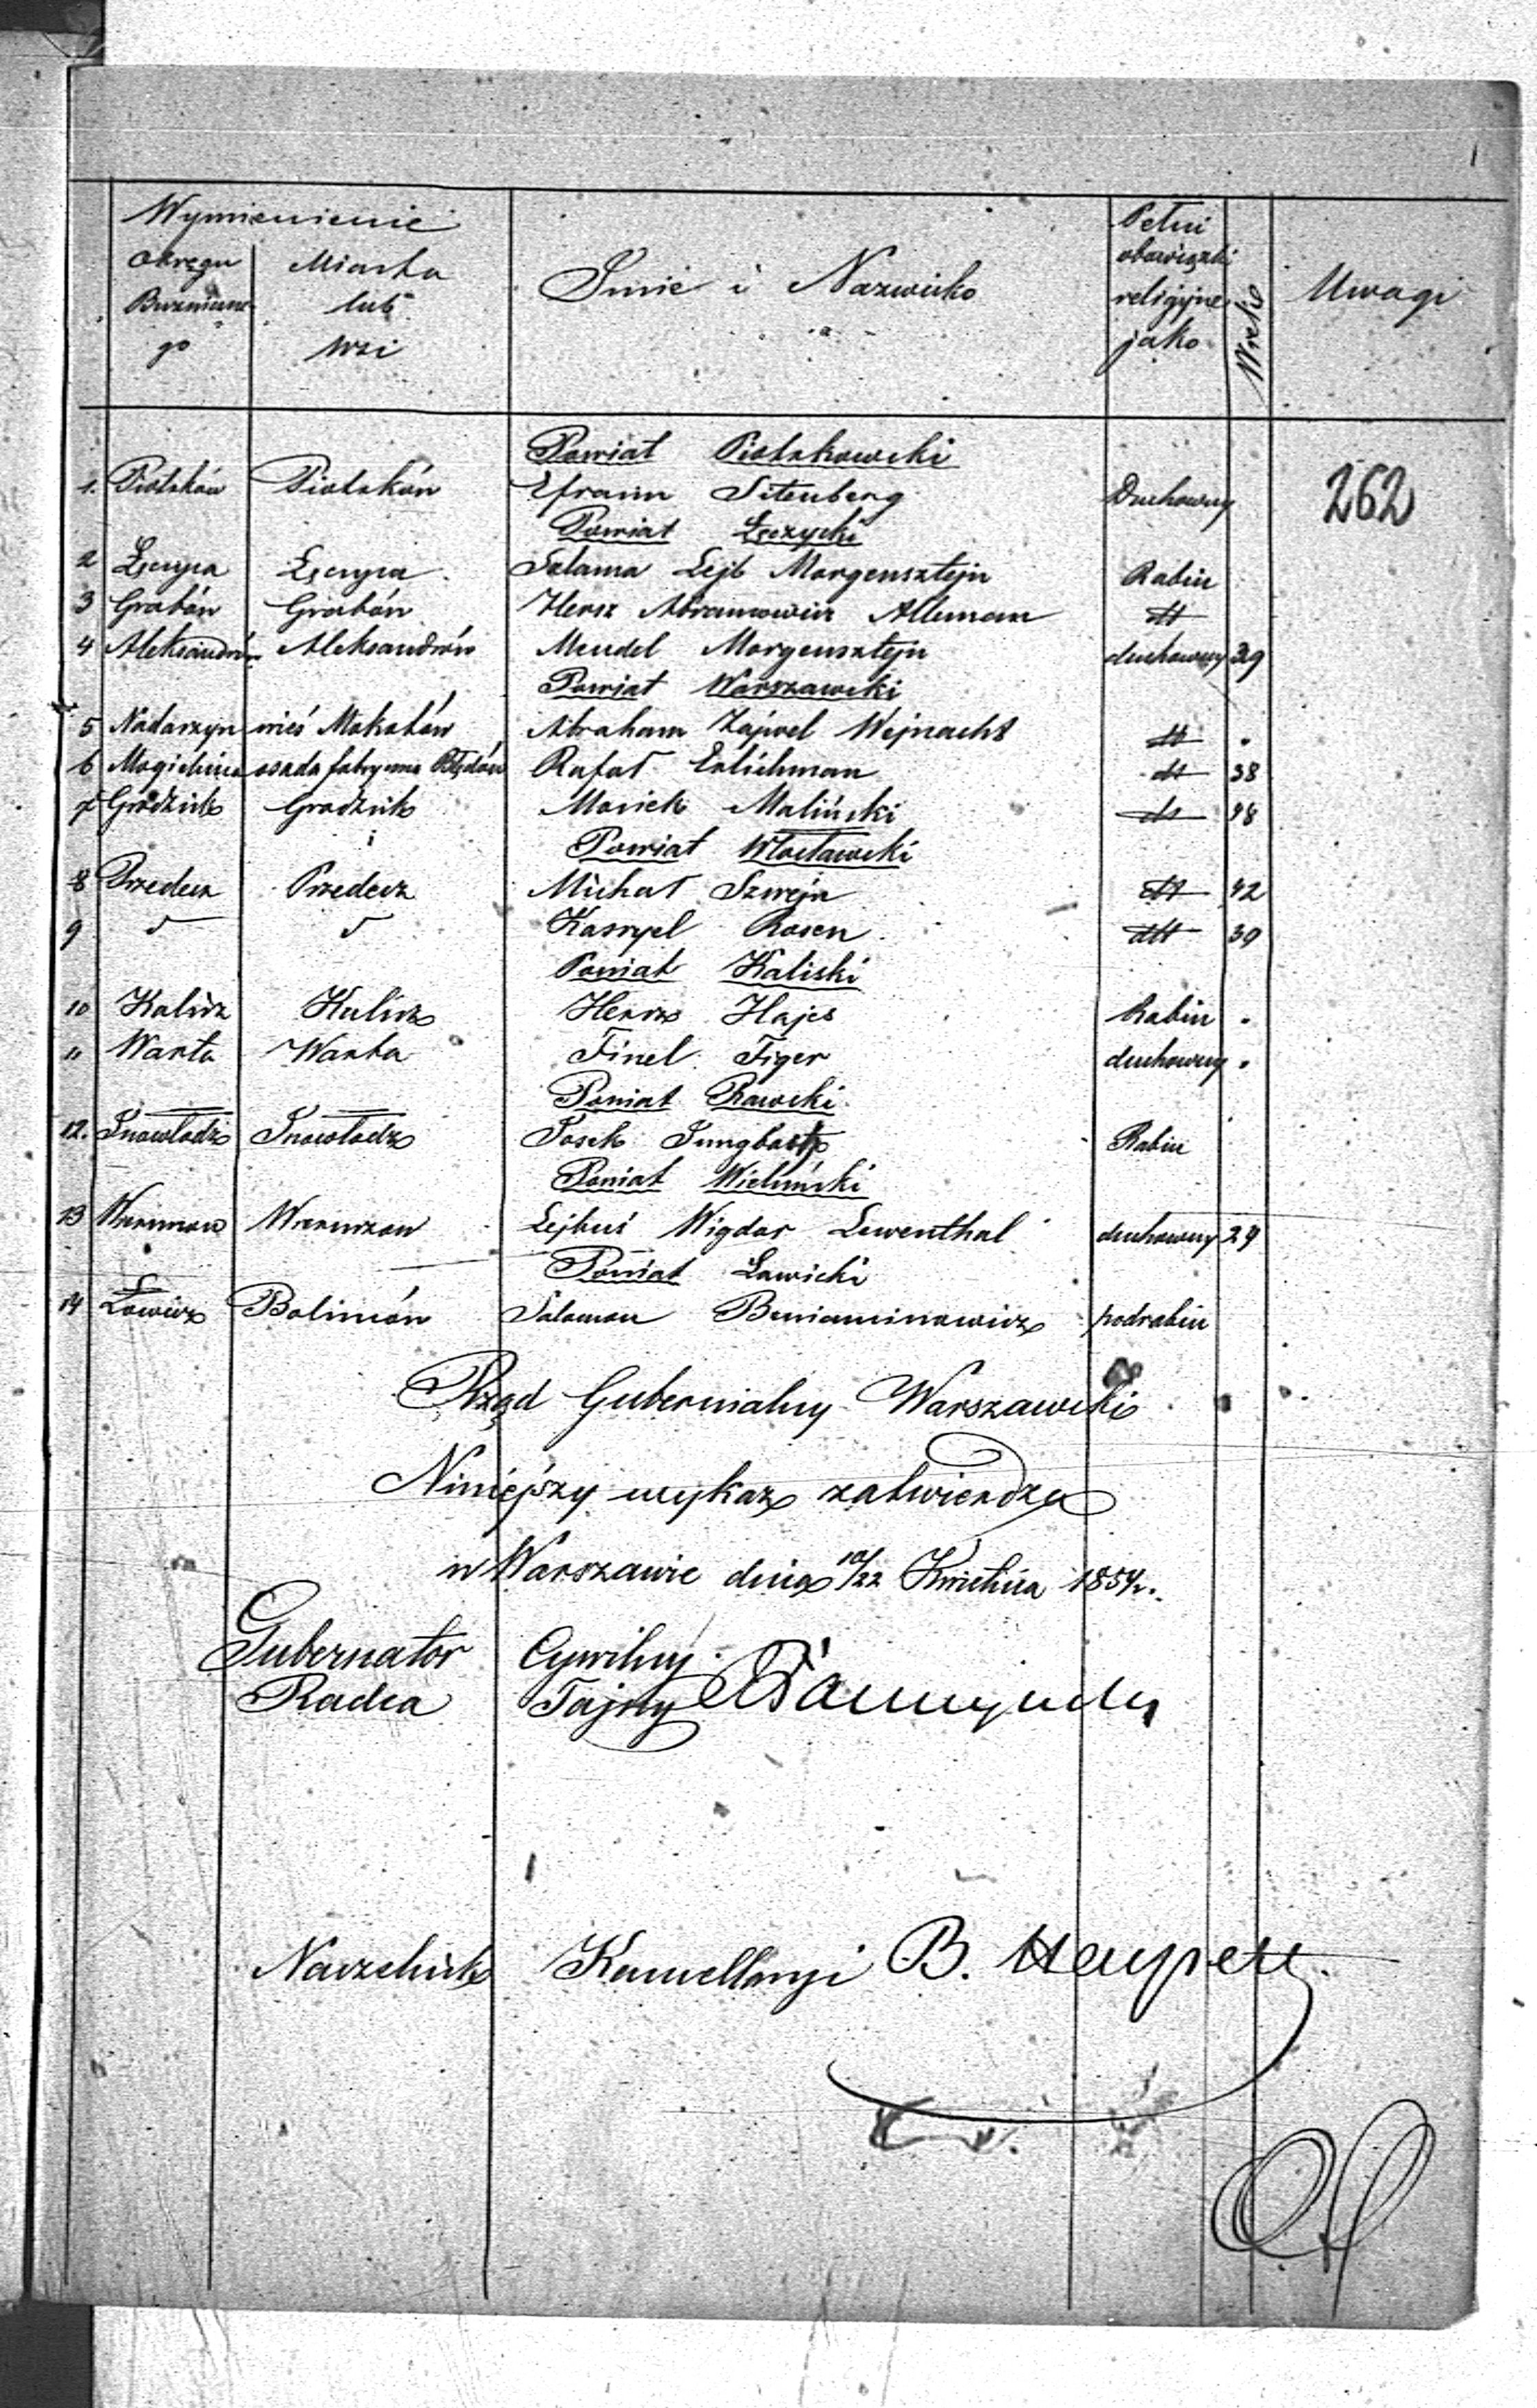 1
Wymienienie
Okręgu Bużniczego
Miasta lub Wsi
Imie i Nazwisko
Pełni obowiązki religijne jako
Wiek
Uwagi
262
Powiat Piotrkowski
1. Piotrków Piotrków Efraim Sitenberg Duchowny
Powiat Łęczycki
2 Łęczyca Łęczyca Salama Lejb Morgensztejn Rabin
3 Grabów Grabów Hersz Abramowicz Alleman dtt
4 Aleksandrów Aleksandrów Mendel Morgensztejn duchowny 39
Powiat Warszawski
5 Nadarzyn wieś Mokotów Abraham Zajwel Wejnacht dtt
6 Mogielnica osada fabryczna Błędów Rafał Erlichman dtt 38
7 Grodzisk Grodzisk Mosiek Maliński dtt 48
Powiat Włocławski
8 Przedecz Przedecz Michał Szwejn dtt 42
9 Kasryel Rosen dtt 39
Powiat Kaliski
10 Kalisz Kalisz Hersz Hajes Rabin
11 Warta Warta Finel Figer duchowny
Powiat Rawski
12. Inowłodz Inowłodz Josek Rabin
Powiat Wieluński
13 Wieruszow Wieruszow Lejbuś Wigdor Lewenthal duchowny 29
Powiat Łowicki
14 Łowicz Bolimów Salamon Beniaminowicz podrabin
Rząd Gubernialny Warszawski
Niniejszy wykaz zatwierdza
w Warszawie dnia 10/22 Kwietnia 1854r.
Gubernator Cywilny
Radca Tajny
Naczelnik Kancellaryi B.